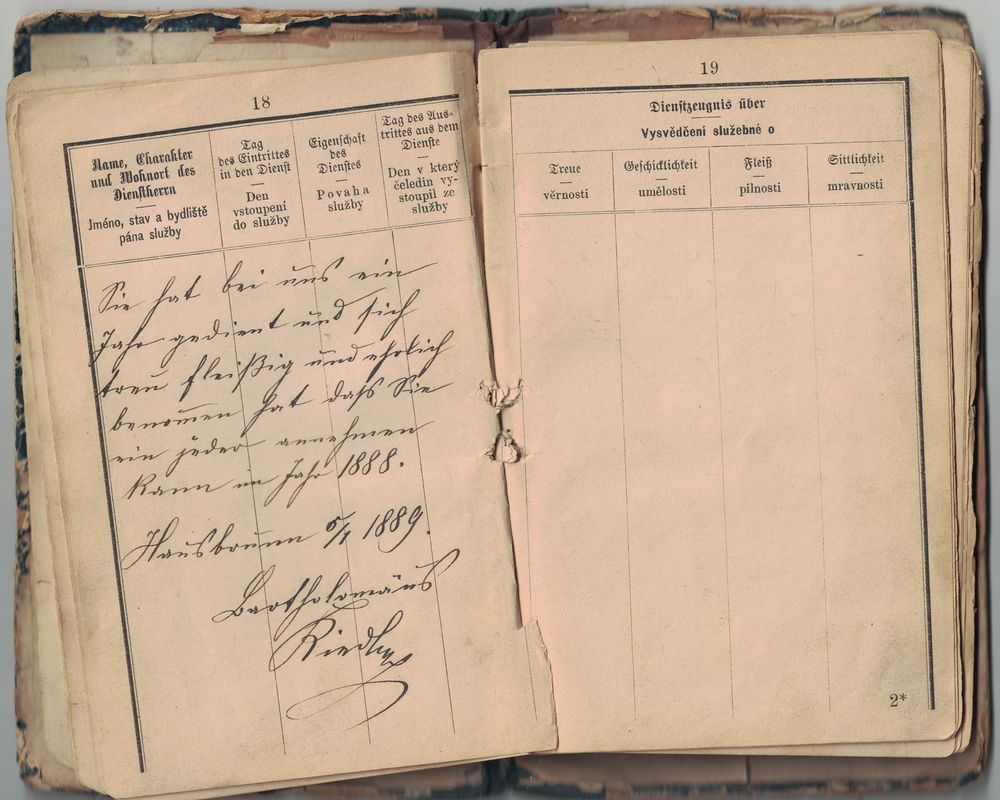 18
Name, Charakter
und Wohnort des
Dienstherrn
Jméno, stav a bydliště
pána služby
Tag
des Eintrittes
in den Dienst
Den
vstoupení
do služby
Eigenschaft
des
Dienstes
Povaha
služby
Tag des Aus-
trittes aus dem
Dienste
Den v který
čeledín vy-
stoupil ze
služby
Sie hat bei uns ein
Jahr gedient und sich
treu fleißig und ehrlich
benommen hat daß Sie
ein jeder annehmen
kann im Jahr 1888.
Hausbrunn 5/1 1889.
Bartholomäus
Riedler
19
Dienstzeugnis über
Vysvědčení služebné o
Treue
věrnosti
Geschicklichkeit
umělosti
Fleiß
pilnosti
Sittlichkeit
mravnosti
2*